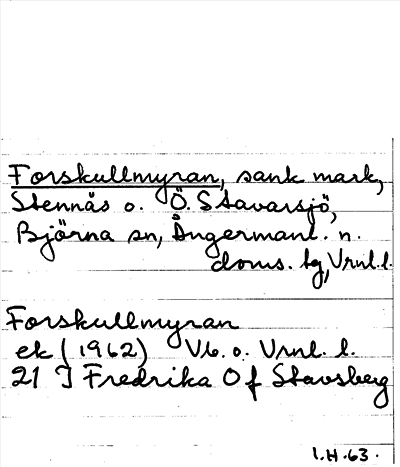 Forskullmyran, sank mark,
Stennäs o. Ö. Stavarsjö,
Björna sn, Ångermanl. n.
doms. tg, Vrnl. l.
Forskullmyran
ek (1962) Vb. o. Vrnl. l.
21 J Fredrika O f Stavsberg
I.H.63.